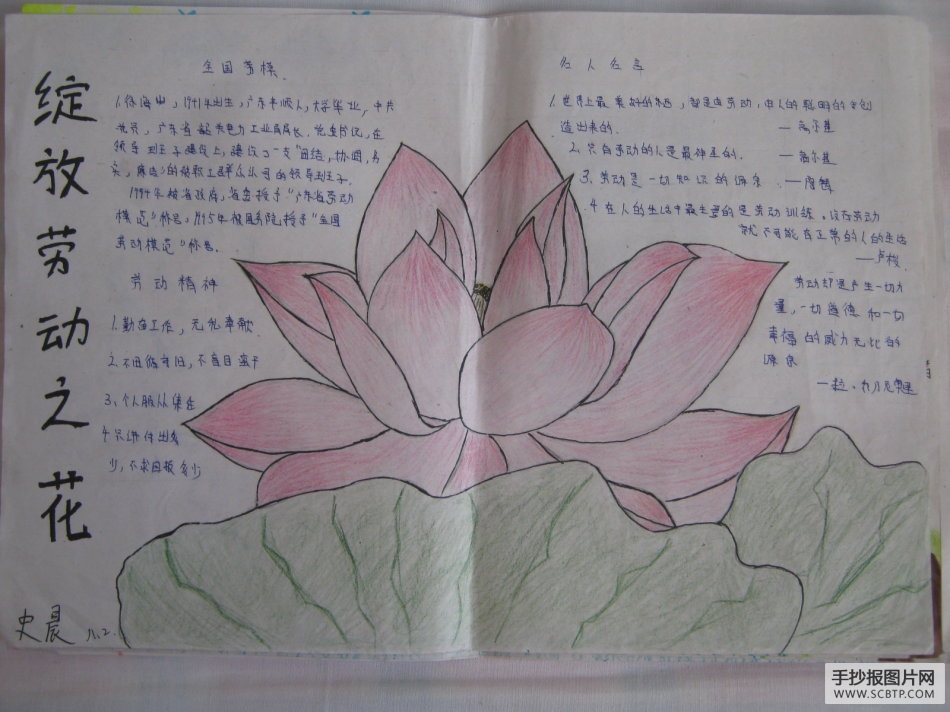 绽放劳动之花
全国劳模
1.徐海申,1941年出生,广东丰顺人,大学毕业,中共
党员,广东省韶关电力工业局局长、党委书记,在
领导班子建设上,建设了一支"团结,协调,务
实,廉洁"的获职工群众认可的领导班子.
1994年被省政府,省委授予"广东省劳动
模范"称号;1995年被国务院授予"全国
劳动模范"称号.
劳动精神
1.勤奋工作,无私奉献
2.不因循守旧,不盲目蛮干
3、个人服从集体
4.只讲付出多
少,不求回报多少
名人名言
1.世界上最美好的东西,都是由劳动,由人的聪明的手创
造出来的. —高尔基
2、只有劳动的人是最神圣的. —高尔基
3、劳动是一切知识的源泉. —陶铸
4.在人的生活中最主要的是劳动训练.没有劳动
就不可能有正常的人的生活
—卢梭.
劳动却是产生一切力
量,一切道德和一切
幸福的威力无比的
源泉
—拉.乔乃尼奥里
史晨 八.2.
手抄报图片网
WWW.SCBTP.COM